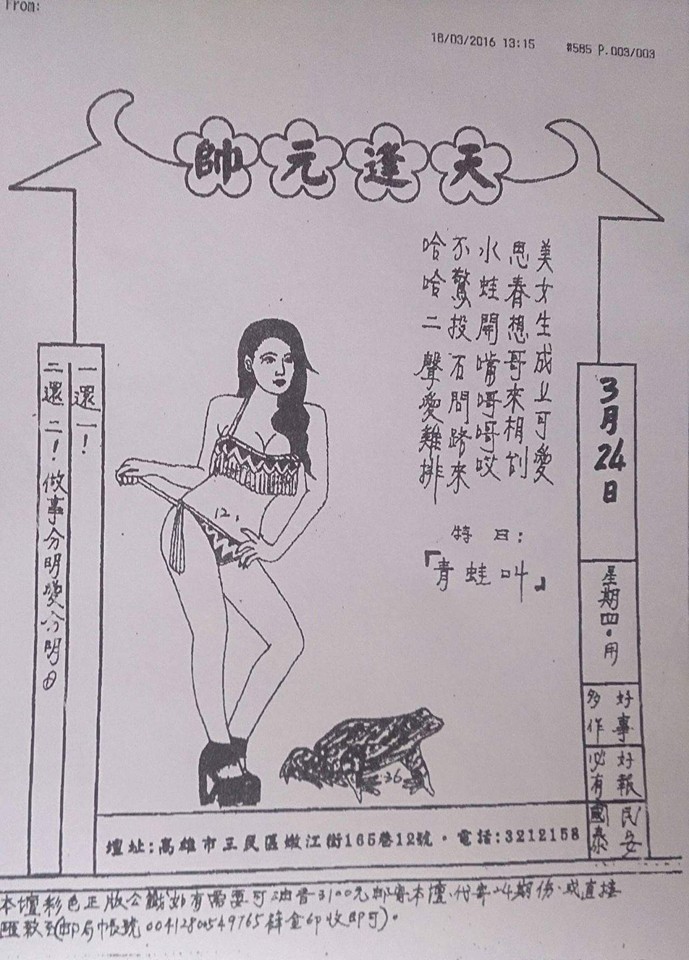 From:
18/03/2016 13:15 #585 P.003/003
天逢元帥
美女生成上可愛
思春想哥來相
水蛙開嘴呵呵哎
不驚投石問路來
哈哈二聲愛難排
特曰:
「青蛙叫」
3月24日
星期四.用
好事多作
好報必有
民安國泰
一還一!
二還二!做事分明愛分明
12.
36
壇址:高雄市三民區嫩江街165巷12號・電話:3212158
本壇彩色正版公籤如有需要可3100元郵寄本壇代寄24期份.或直接
匯款至(郵局帳號00412800549765收即可)。